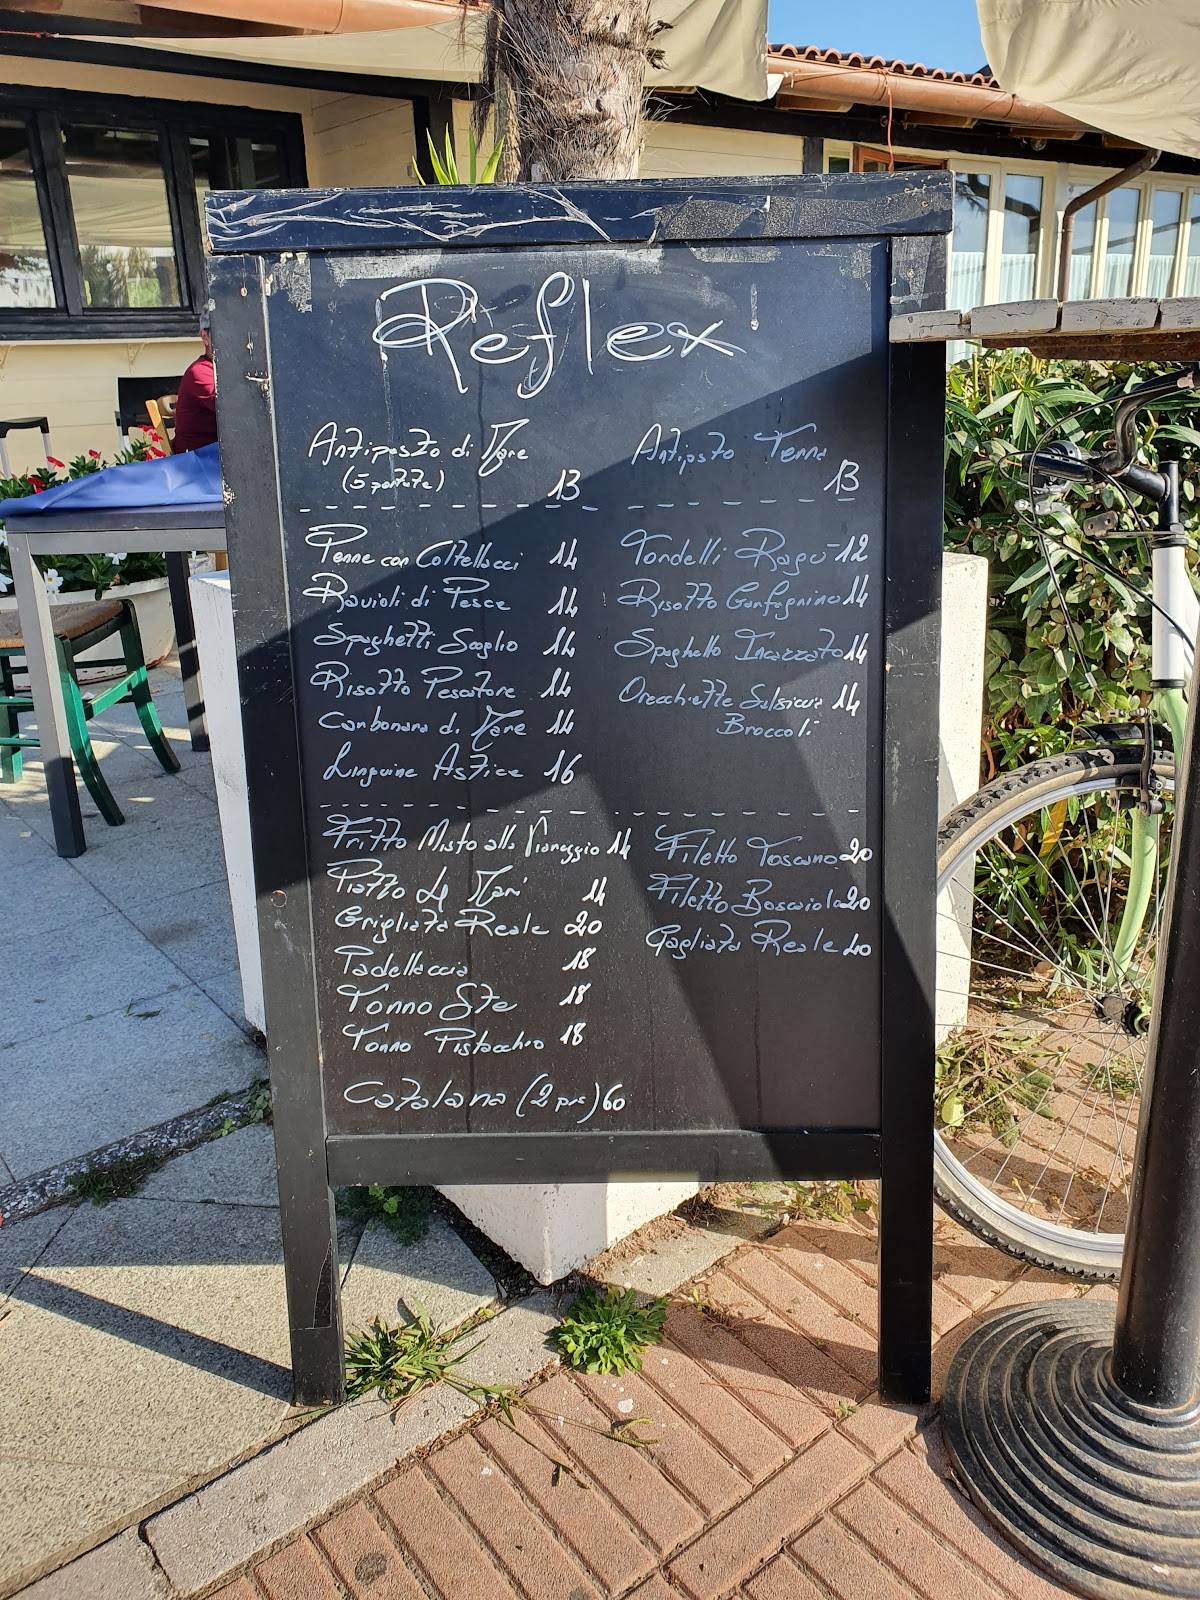 Reflex
Antipasto di Mare
(5 portate) 13
Antipasto Terra
13
Penne con Coltellacci 14
Ravioli di Pesce 14
Spaghetti Scoglio 14
Risotto Pescatore 14
Carbonara di Mare 14
Linguine Astice 16
Tordelli Ragù 12
Risotto Garfagnino 14
Spaghetto Incazzato 14
Orecchiette Salsiccia 14
Broccoli
Fritto Misto alla Viareggio 14
Piatto 14
Grigliata Reale 20
Padellaccia 18
Tonno Ste 18
Tonno Pistacchio 18
Catalana (2 prs) 60
Filetto Toscano 20
Filetto Boscaiola 20
Tagliata Reale 20